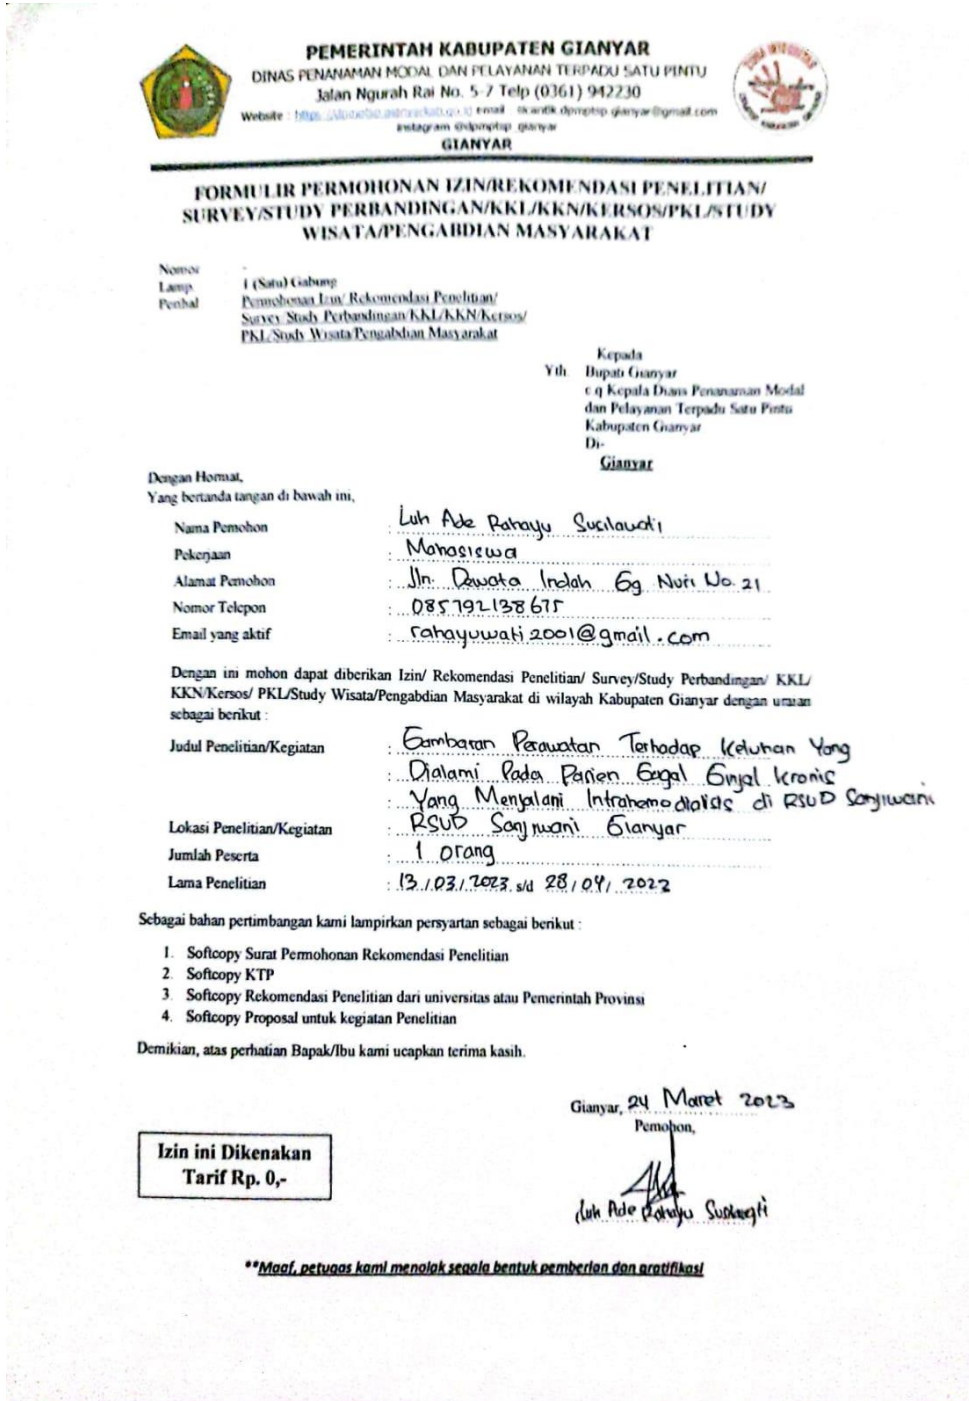 PEMERINTAH KABUPATEN GIANYAR
DINAS PENANAMAN MODAL DAN PELAYANAN TERPADU SATU PINTU
Jalan Ngurah Rai No. 5-7 Telp (0361) 942230
Website : email : dpmptsp.gianyar@gmail.com
Instagram @dpmptsp_gianyar
GIANYAR
FORMULIR PERMOHONAN IZIN/REKOMENDASI PENELITIAN/
SURVEY/STUDY PERBANDINGAN/KKL/KKN/KERSOS/PKL/STUDY
WISATA/PENGABDIAN MASYARAKAT
Nomor -
Lamp. 1 (Satu) Gabung
Perihal Permohonan Izin/ Rekomendasi Penelitian/
Survey/Study Perbandingan/KKL/KKN/Kersos/
PKL/Study Wisata/Pengabdian Masyarakat
Kepada
Yth. Bupati Gianyar
c.q Kepala Dians Penanaman Modal
dan Pelayanan Terpadu Satu Pintu
Kabupaten Gianyar
Di-
Gianyar
Dengan Hormat,
Yang bertanda tangan di bawah ini,
Nama Pemohon : Luh Ade Rahayu Susilawati
Pekerjaan : Mahasiswa
Alamat Pemohon : Jln. Dewata Indah Gg Nuri No. 21
Nomor Telepon : 085792138675
Email yang aktif : rahayuwati2001@gmail.com
Dengan ini mohon dapat diberikan Izin/ Rekomendasi Penelitian/ Survey/Study Perbandingan/ KKL/
KKN/Kersos/ PKL/Study Wisata/Pengabdian Masyarakat di wilayah Kabupaten Gianyar dengan uraian
sebagai berikut :
Judul Penelitian/Kegiatan : Gambaran Perawatan Terhadap Keluhan Yang
: Dialami Pada Pasien Gagal Ginjal Kronis
: Yang Menjalani Intrahemodialisis di RSUD Sanjiwani
Lokasi Penelitian/Kegiatan : RSUD Sanjiwani Gianyar
Jumlah Peserta : 1 orang
Lama Penelitian : 13/03/2023 s/d 28/04/2023
Sebagai bahan pertimbangan kami lampirkan persyartan sebagai berikut :
1. Softcopy Surat Permohonan Rekomendasi Penelitian
2. Softcopy KTP
3. Softcopy Rekomendasi Penelitian dari universitas atau Pemerintah Provinsi
4. Softcopy Proposal untuk kegiatan Penelitian
Demikian, atas perhatian Bapak/Ibu kami ucapkan terima kasih.
Gianyar, 24 Maret 2023
Pemohon,
Izin ini Dikenakan
Tarif Rp. 0,-
Luh Ade Rahayu Susilawati
**Maaf, petugas kami menolak segala bentuk pemberian dan gratifikasi